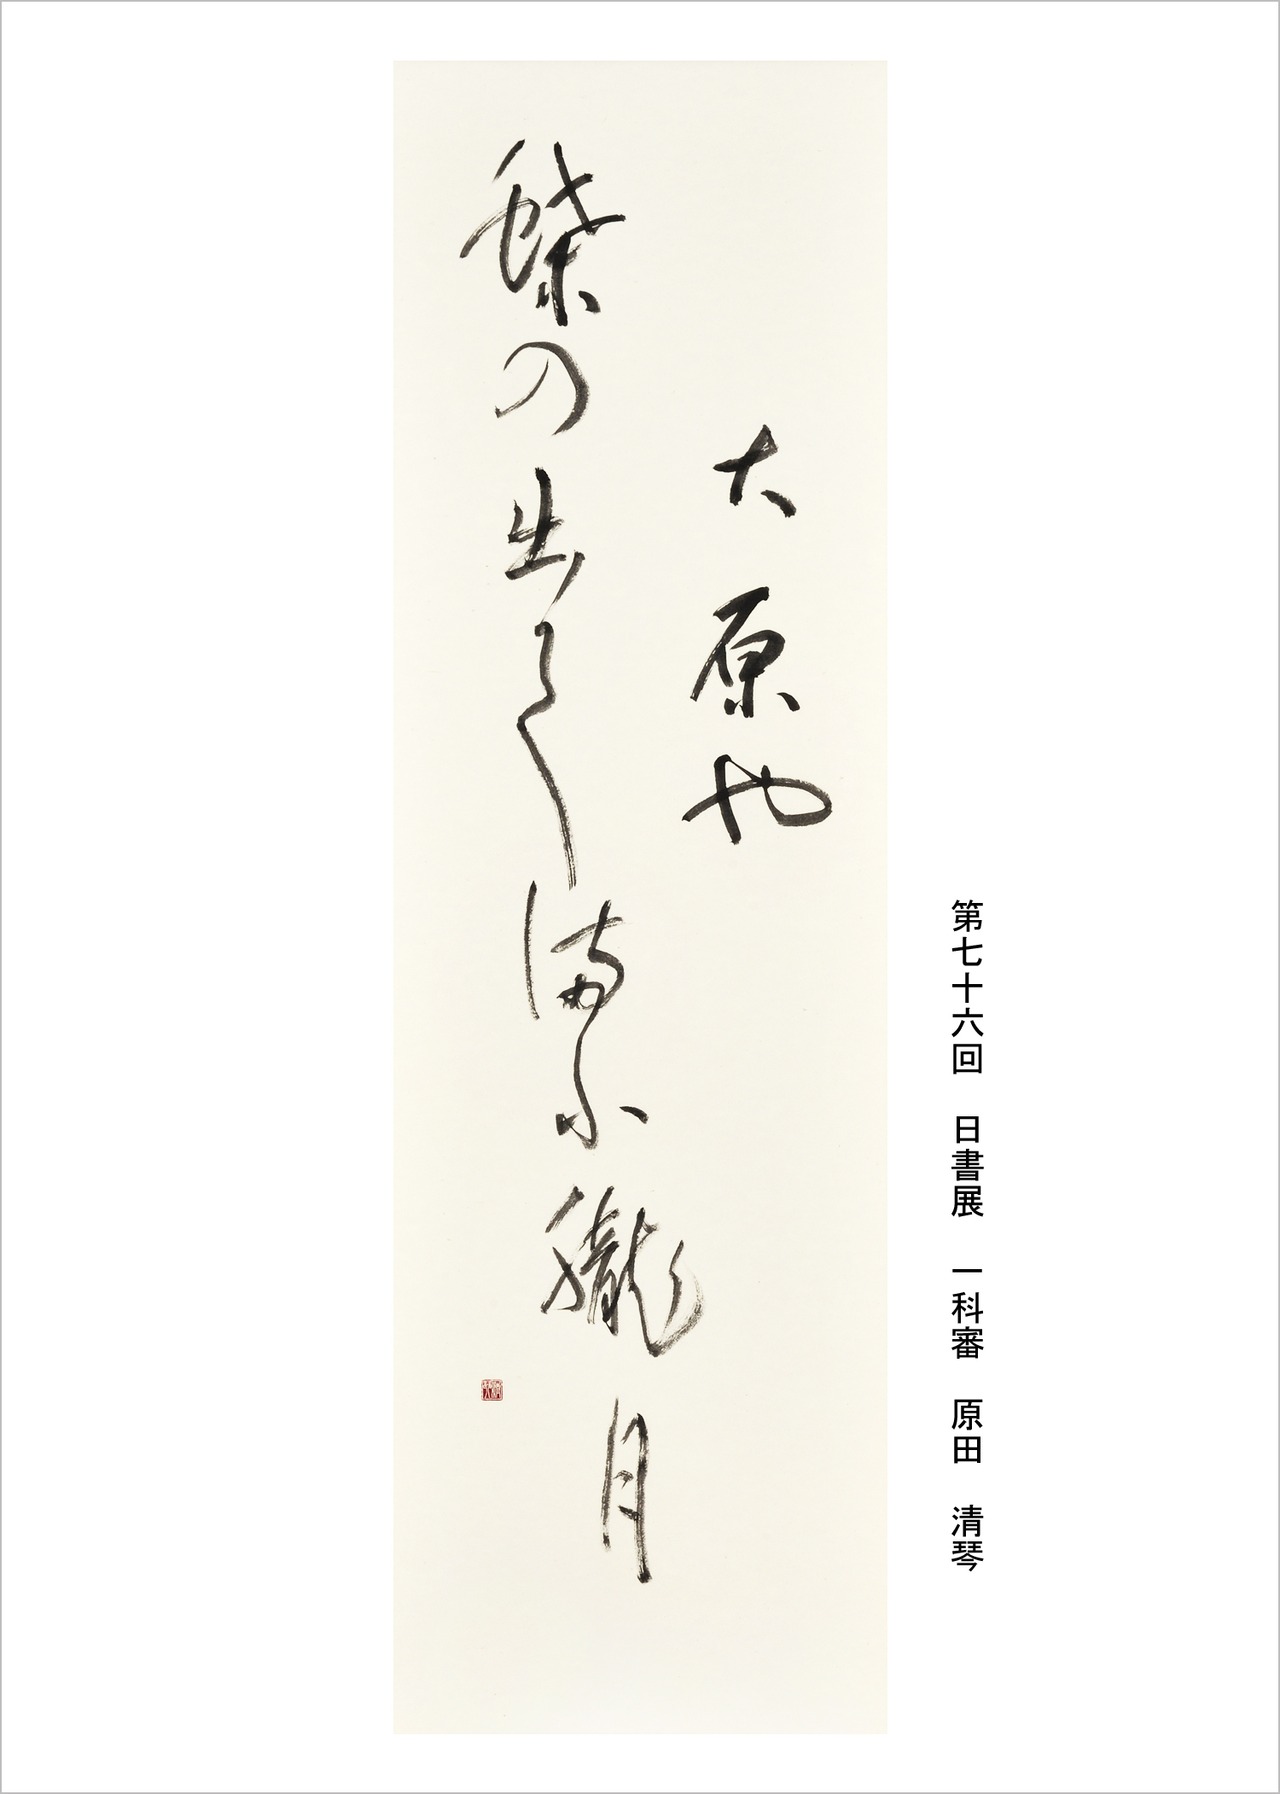 第七十六回　日書展　一科審　原田　清琴
大原や
蝶の出てまふ朧月